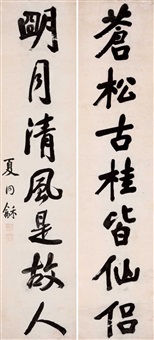 蒼松古桂皆仙侶
明月清風是故人
夏同龢